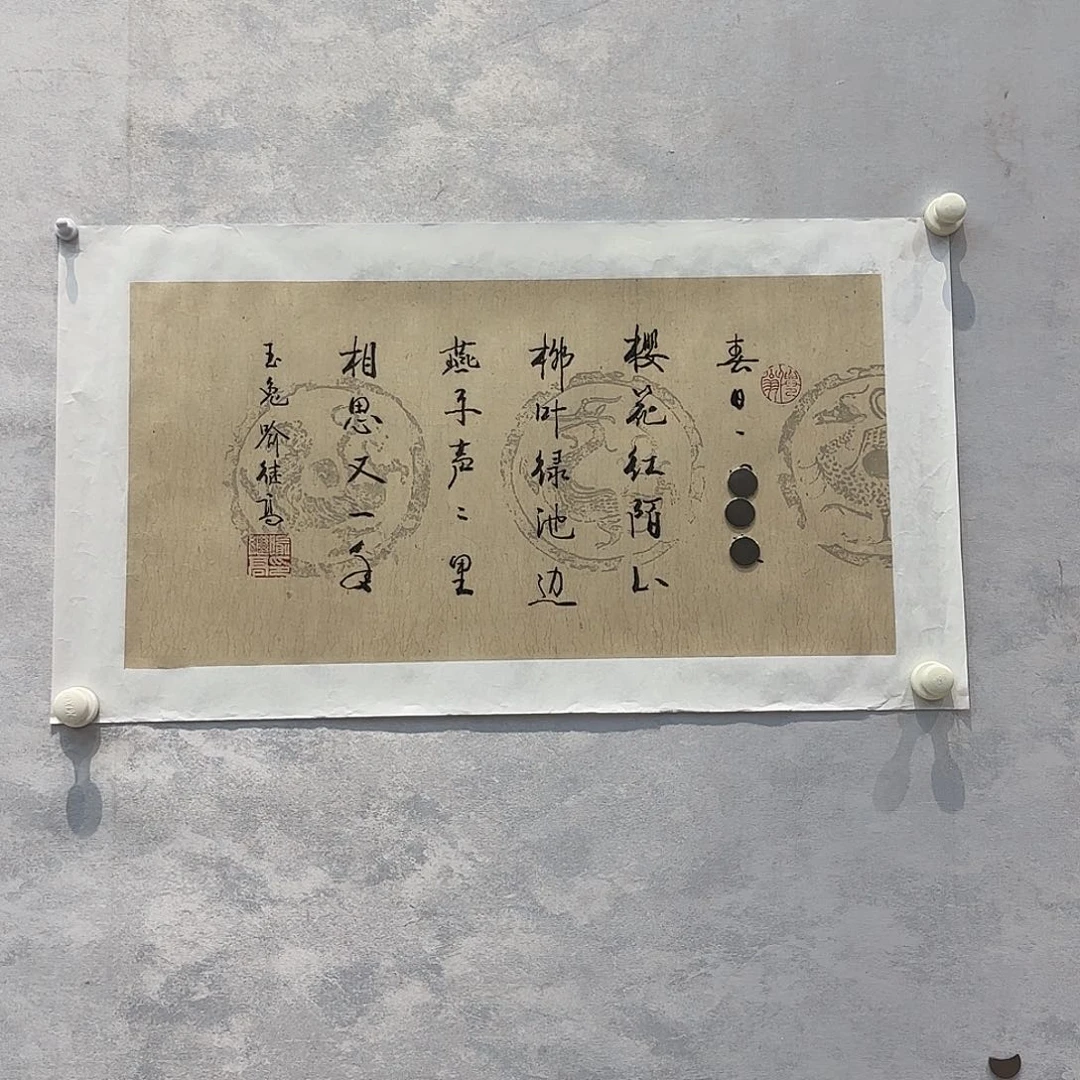 春日、
樱花红陌上
柳叶绿池边
燕子声声里
相思又一年
玉兔喻继高
喻继高